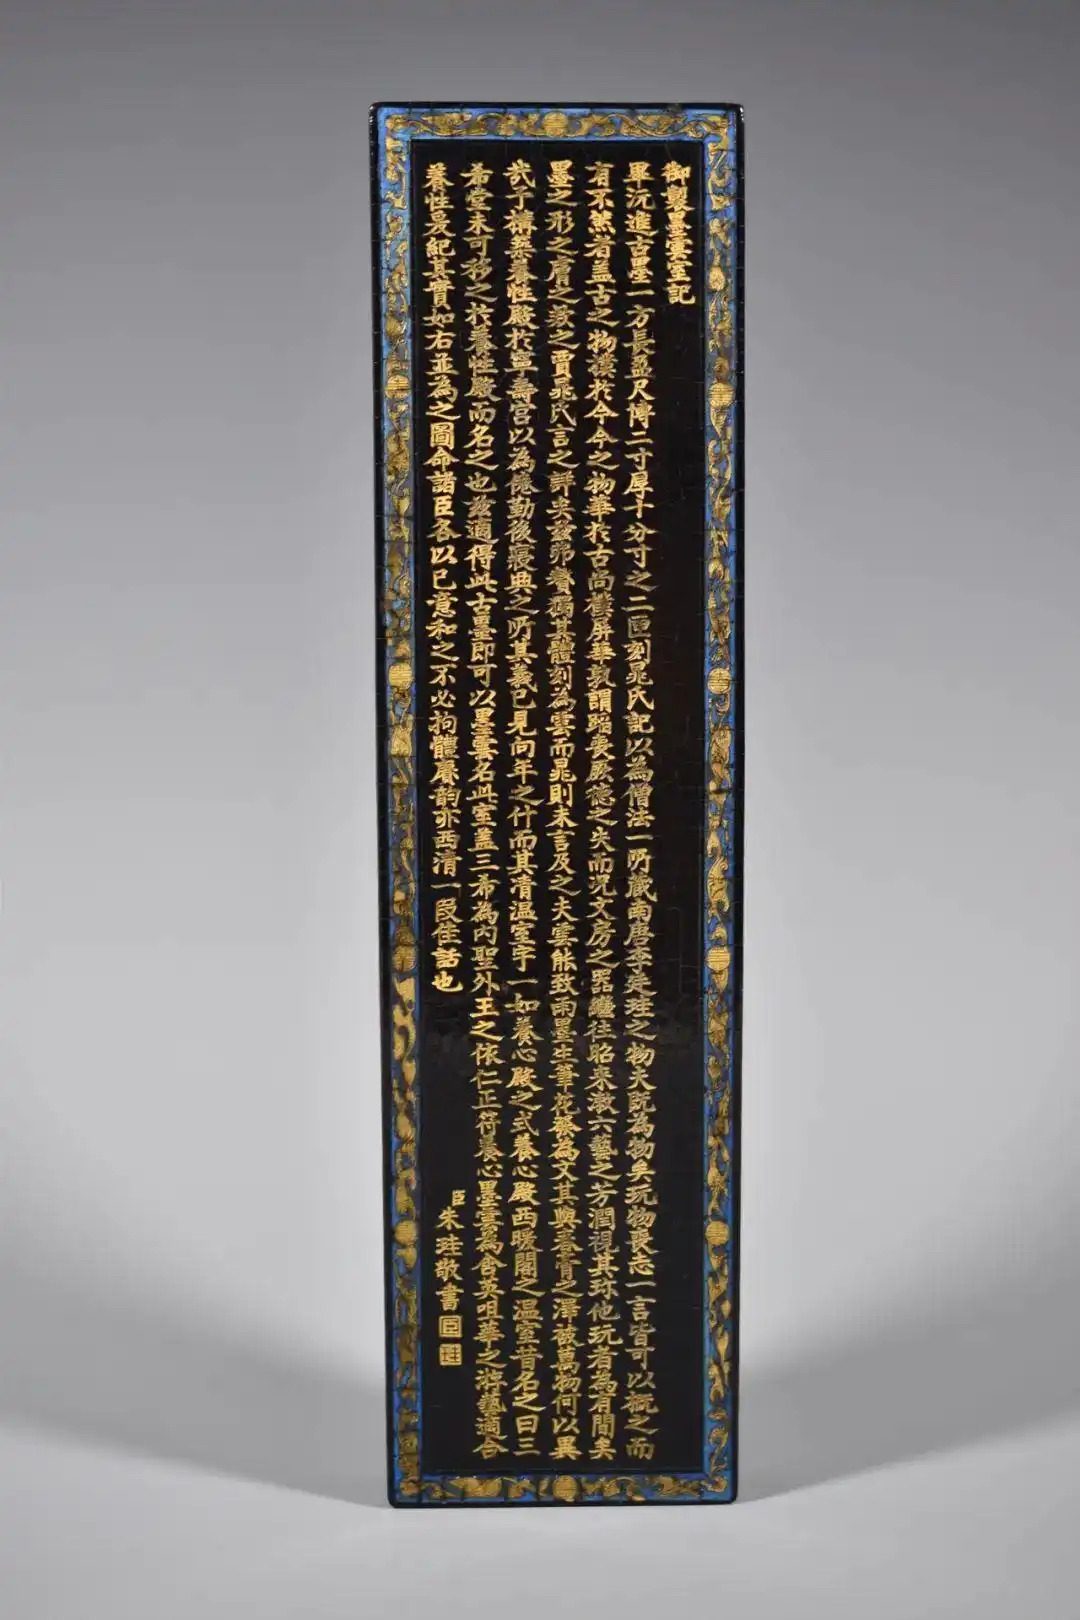 御製墨雲室記
畢沅進古墨一方長盈尺博二寸厚十分寸之二匣刻晁氏記以為僧法一所藏南唐李廷珪之物夫既為物矣玩物喪志一言皆可以概之而
有不然者盖古之物樸於今今之物華於古尚樸屏華孰謂蹈喪厥德之失而况文房之器繼往昭来漱六藝之芳潤視其珎他玩者為有間矣
墨之形之膚之裂之賈晁氏言之詳矣兹弗贅獨其體刻為雲而晁則未言及之夫雲能致雨墨生筆花發為文其與春膏之澤被萬物何以異
㢤予構築養性殿於寧壽宫以為倦勤後寢興之所其義已見向年之什而其清温室宇一如養心殿之式養心殿西暖閣之温室昔名之曰三
希堂未可移之於養性殿而名之也兹適得此古墨即可以墨雲名此室盖三希為内聖外王之依仁正符養心墨雲為含英咀華之游藝適合
養性爰紀其實如右並為之圖命諸臣各以已意和之不必拘體賡韵亦西清一段佳話也
臣朱珪敬書 臣 珪